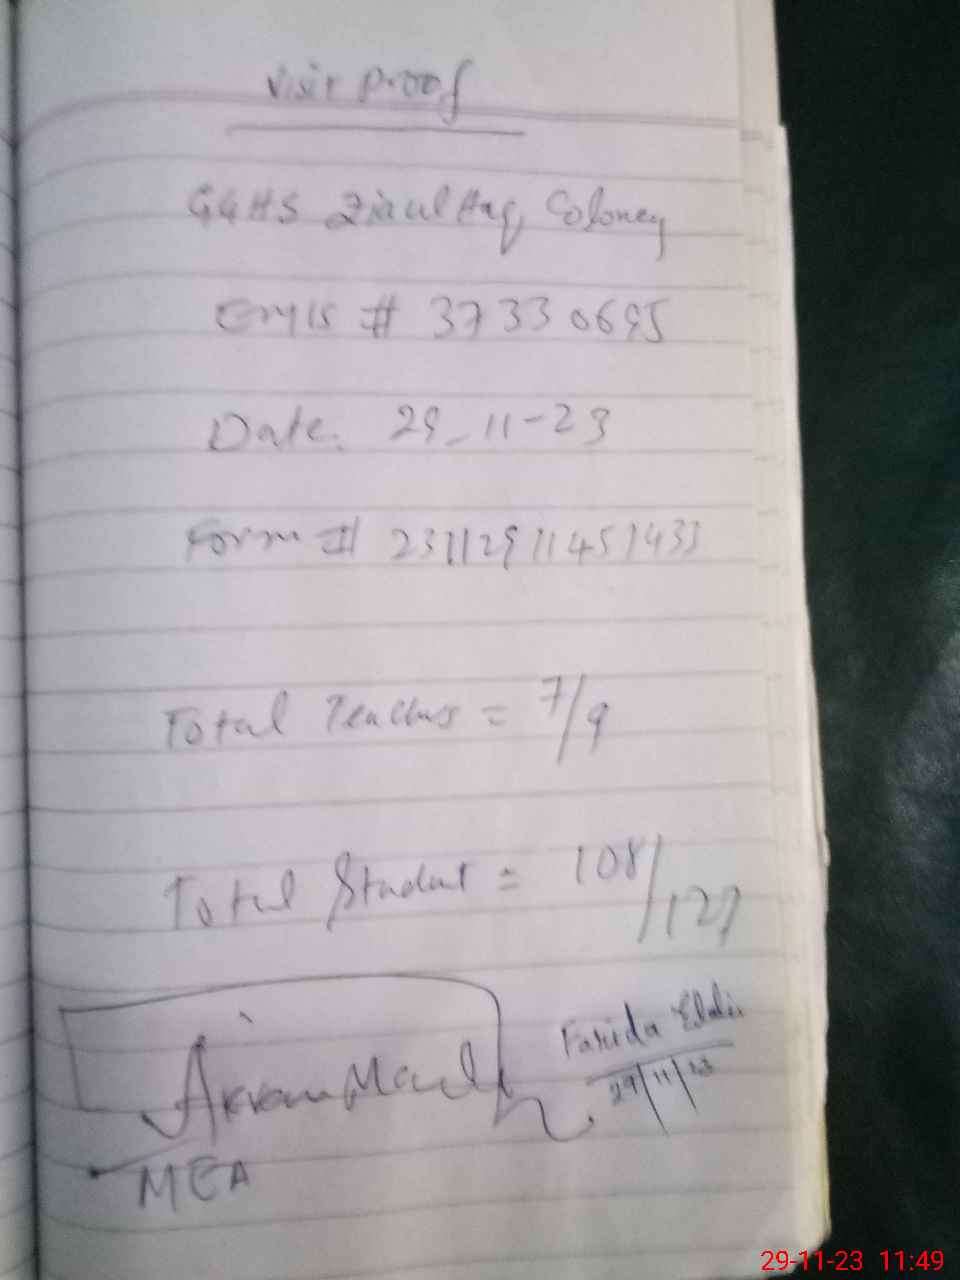 Visit Proof
GGHS Ziaul Haq Coloney
Emis # 37330695
Date. 29-11-23
Form #
Total Teachers = 7/9
Total Student = 108/127
Farida
29/11/23
MEA
29-11-23 11:49